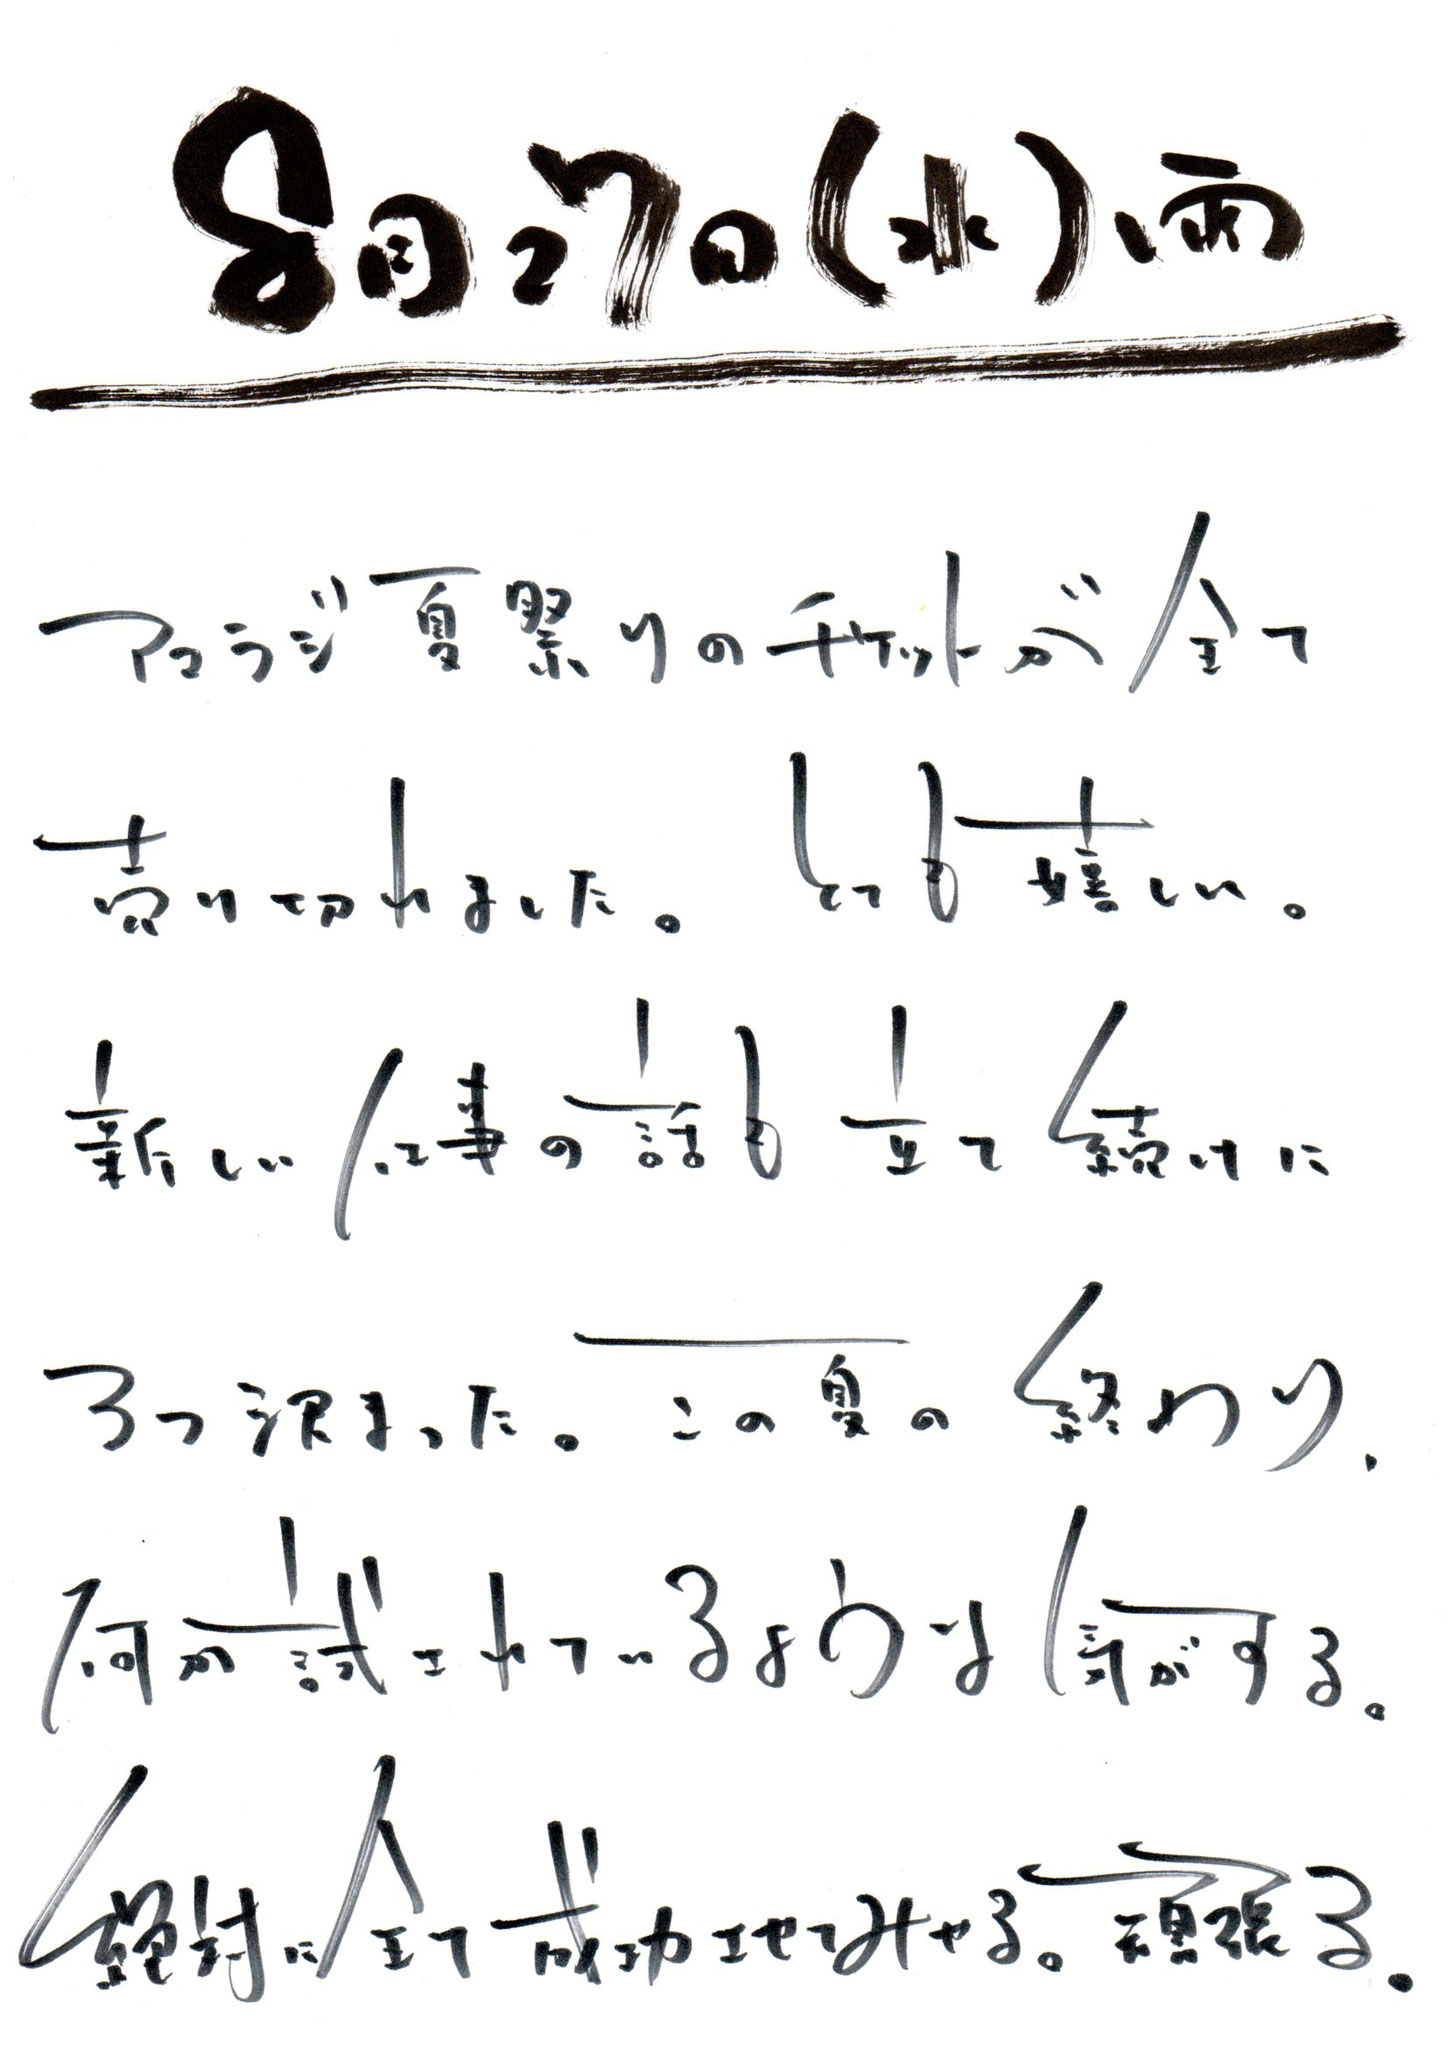 8月27日(水)雨
アコラジ夏祭りのチケットが全て
売り切れました。とても嬉しい。
新しい仕事の話も立て続けに
3つ決まった。この夏の終わり、
何か試されているような気がする。
絶対に全て成功させてみせる。頑張る。